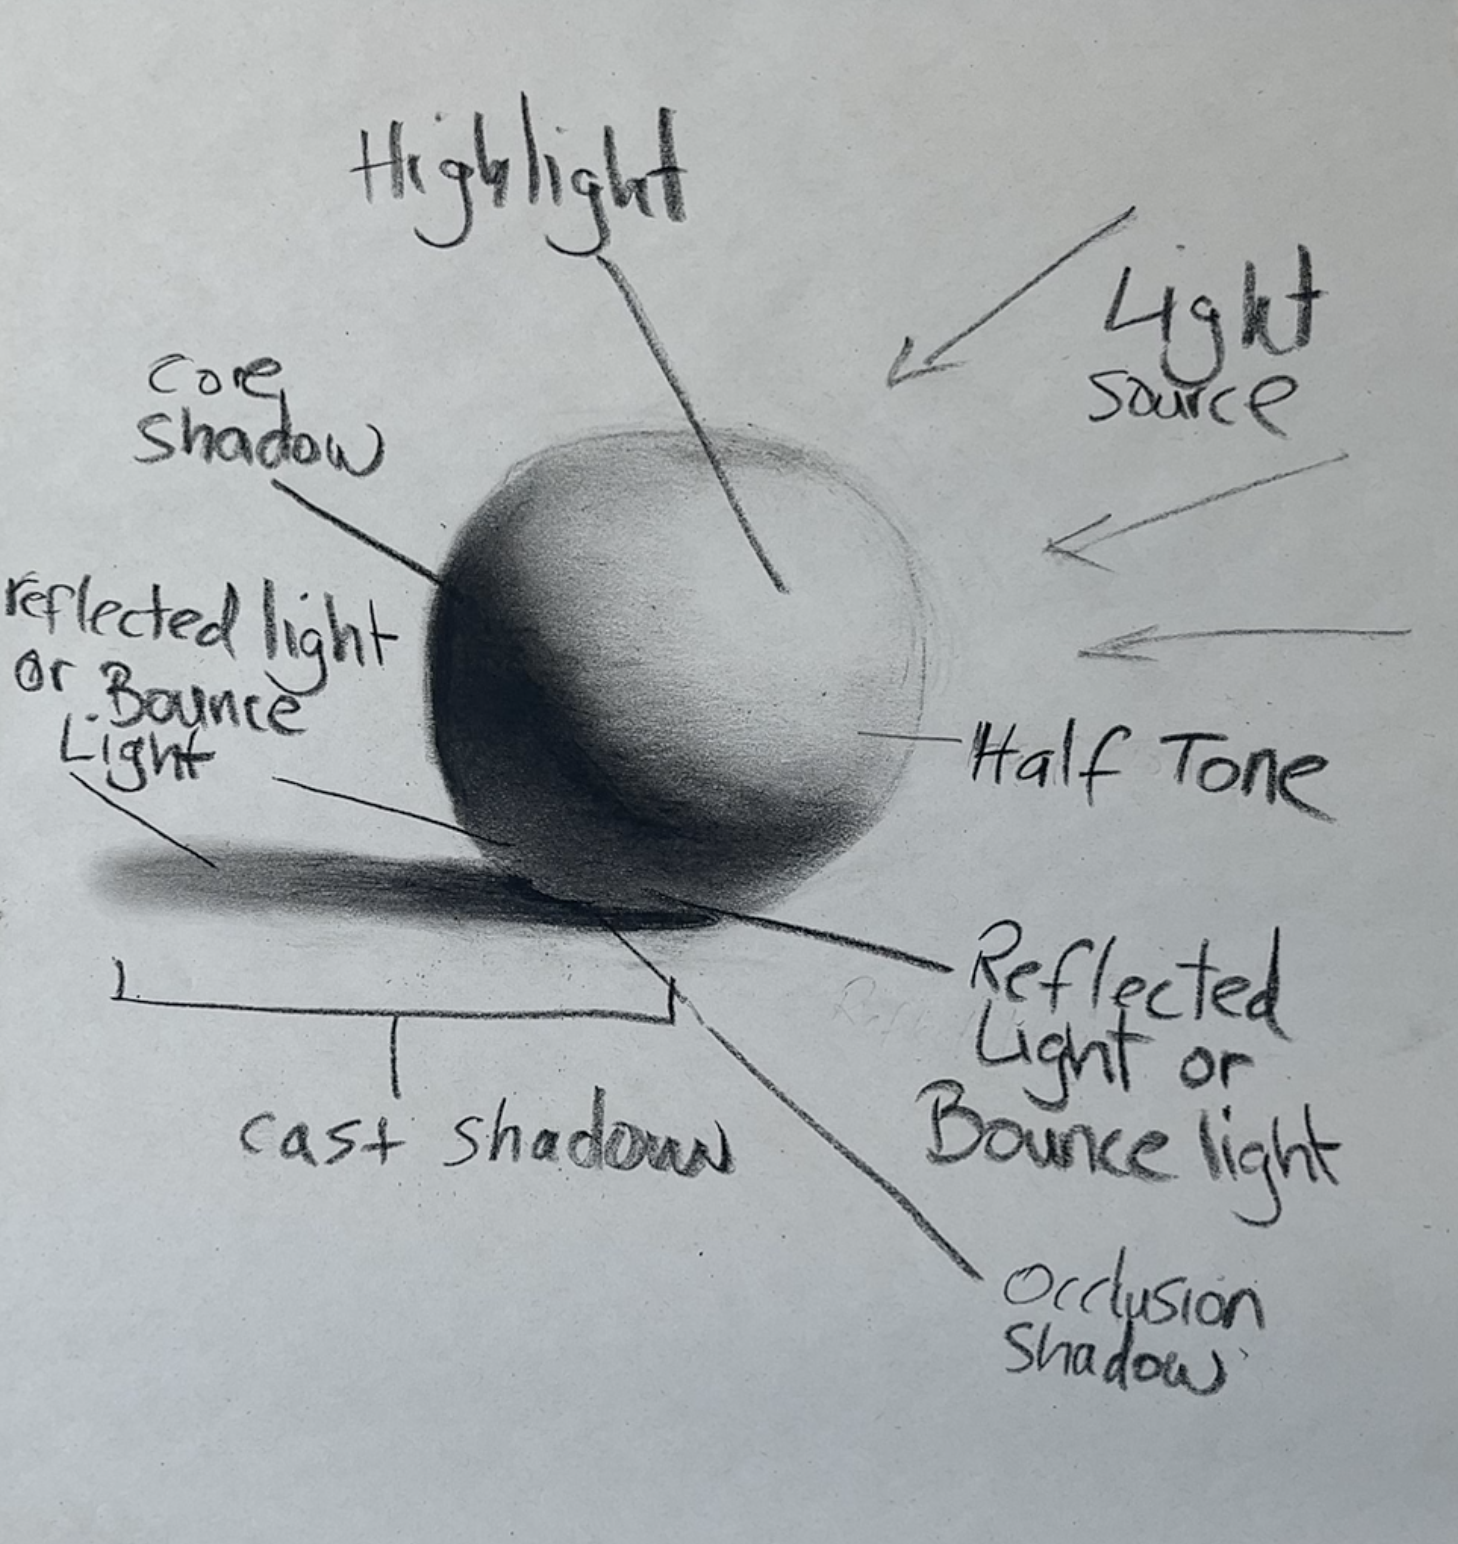 Highlight
Light
source
Core
shadow
reflected light
or Bounce
Light
Half Tone
Reflected
Light or
Bounce light
cast shadow
Occlusion
Shadow